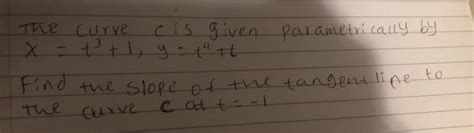 The curve c is given parametrically by
x = t³+1, y = t⁴+t
Find the slope of the tangent line to
the curve C at t = -1